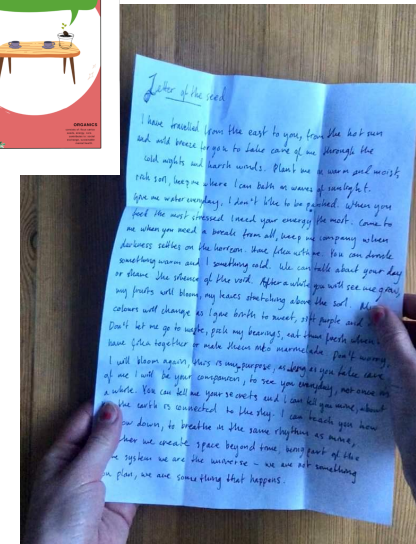 ORGANICS
Letter of the seed
I have travelled from the east to you, from the hot sun
and mild breeze for you to take care of me through the
cold nights and harsh winds. Plant me in warm and moist,
rich soil, keep me where I can bath in waves of sunlight.
Give me water everyday, I don't like to be parched. When you
feel the most stressed I need your energy the most. Come to
me when you need a break from all, keep me company when
darkness settles on the horizon. Have fika with me. You can drink
something warm and I something cold. We can talk about your day
or share the silence of the void. After a while you will see me grow,
my fruits will bloom, my leaves stretching above the soil. My
colours will change as I gave birth to sweet, soft purple and
Don't let me go to waste, pick my bearings, eat them fresh when
have fika together or make them into marmelade. Don't worry,
I will bloom again, this is my purpose, as long as you take care
of me I will be your companion, to see you everyday, not once in
a while. You can tell me your secrets and I can tell you mine, about
the earth is connected to the sky. I can teach you how
down, to breathe in the same rhythm as mine,
we create space beyond time, being part of the
system we are the universe – we are not something
plan, we are something that happens.